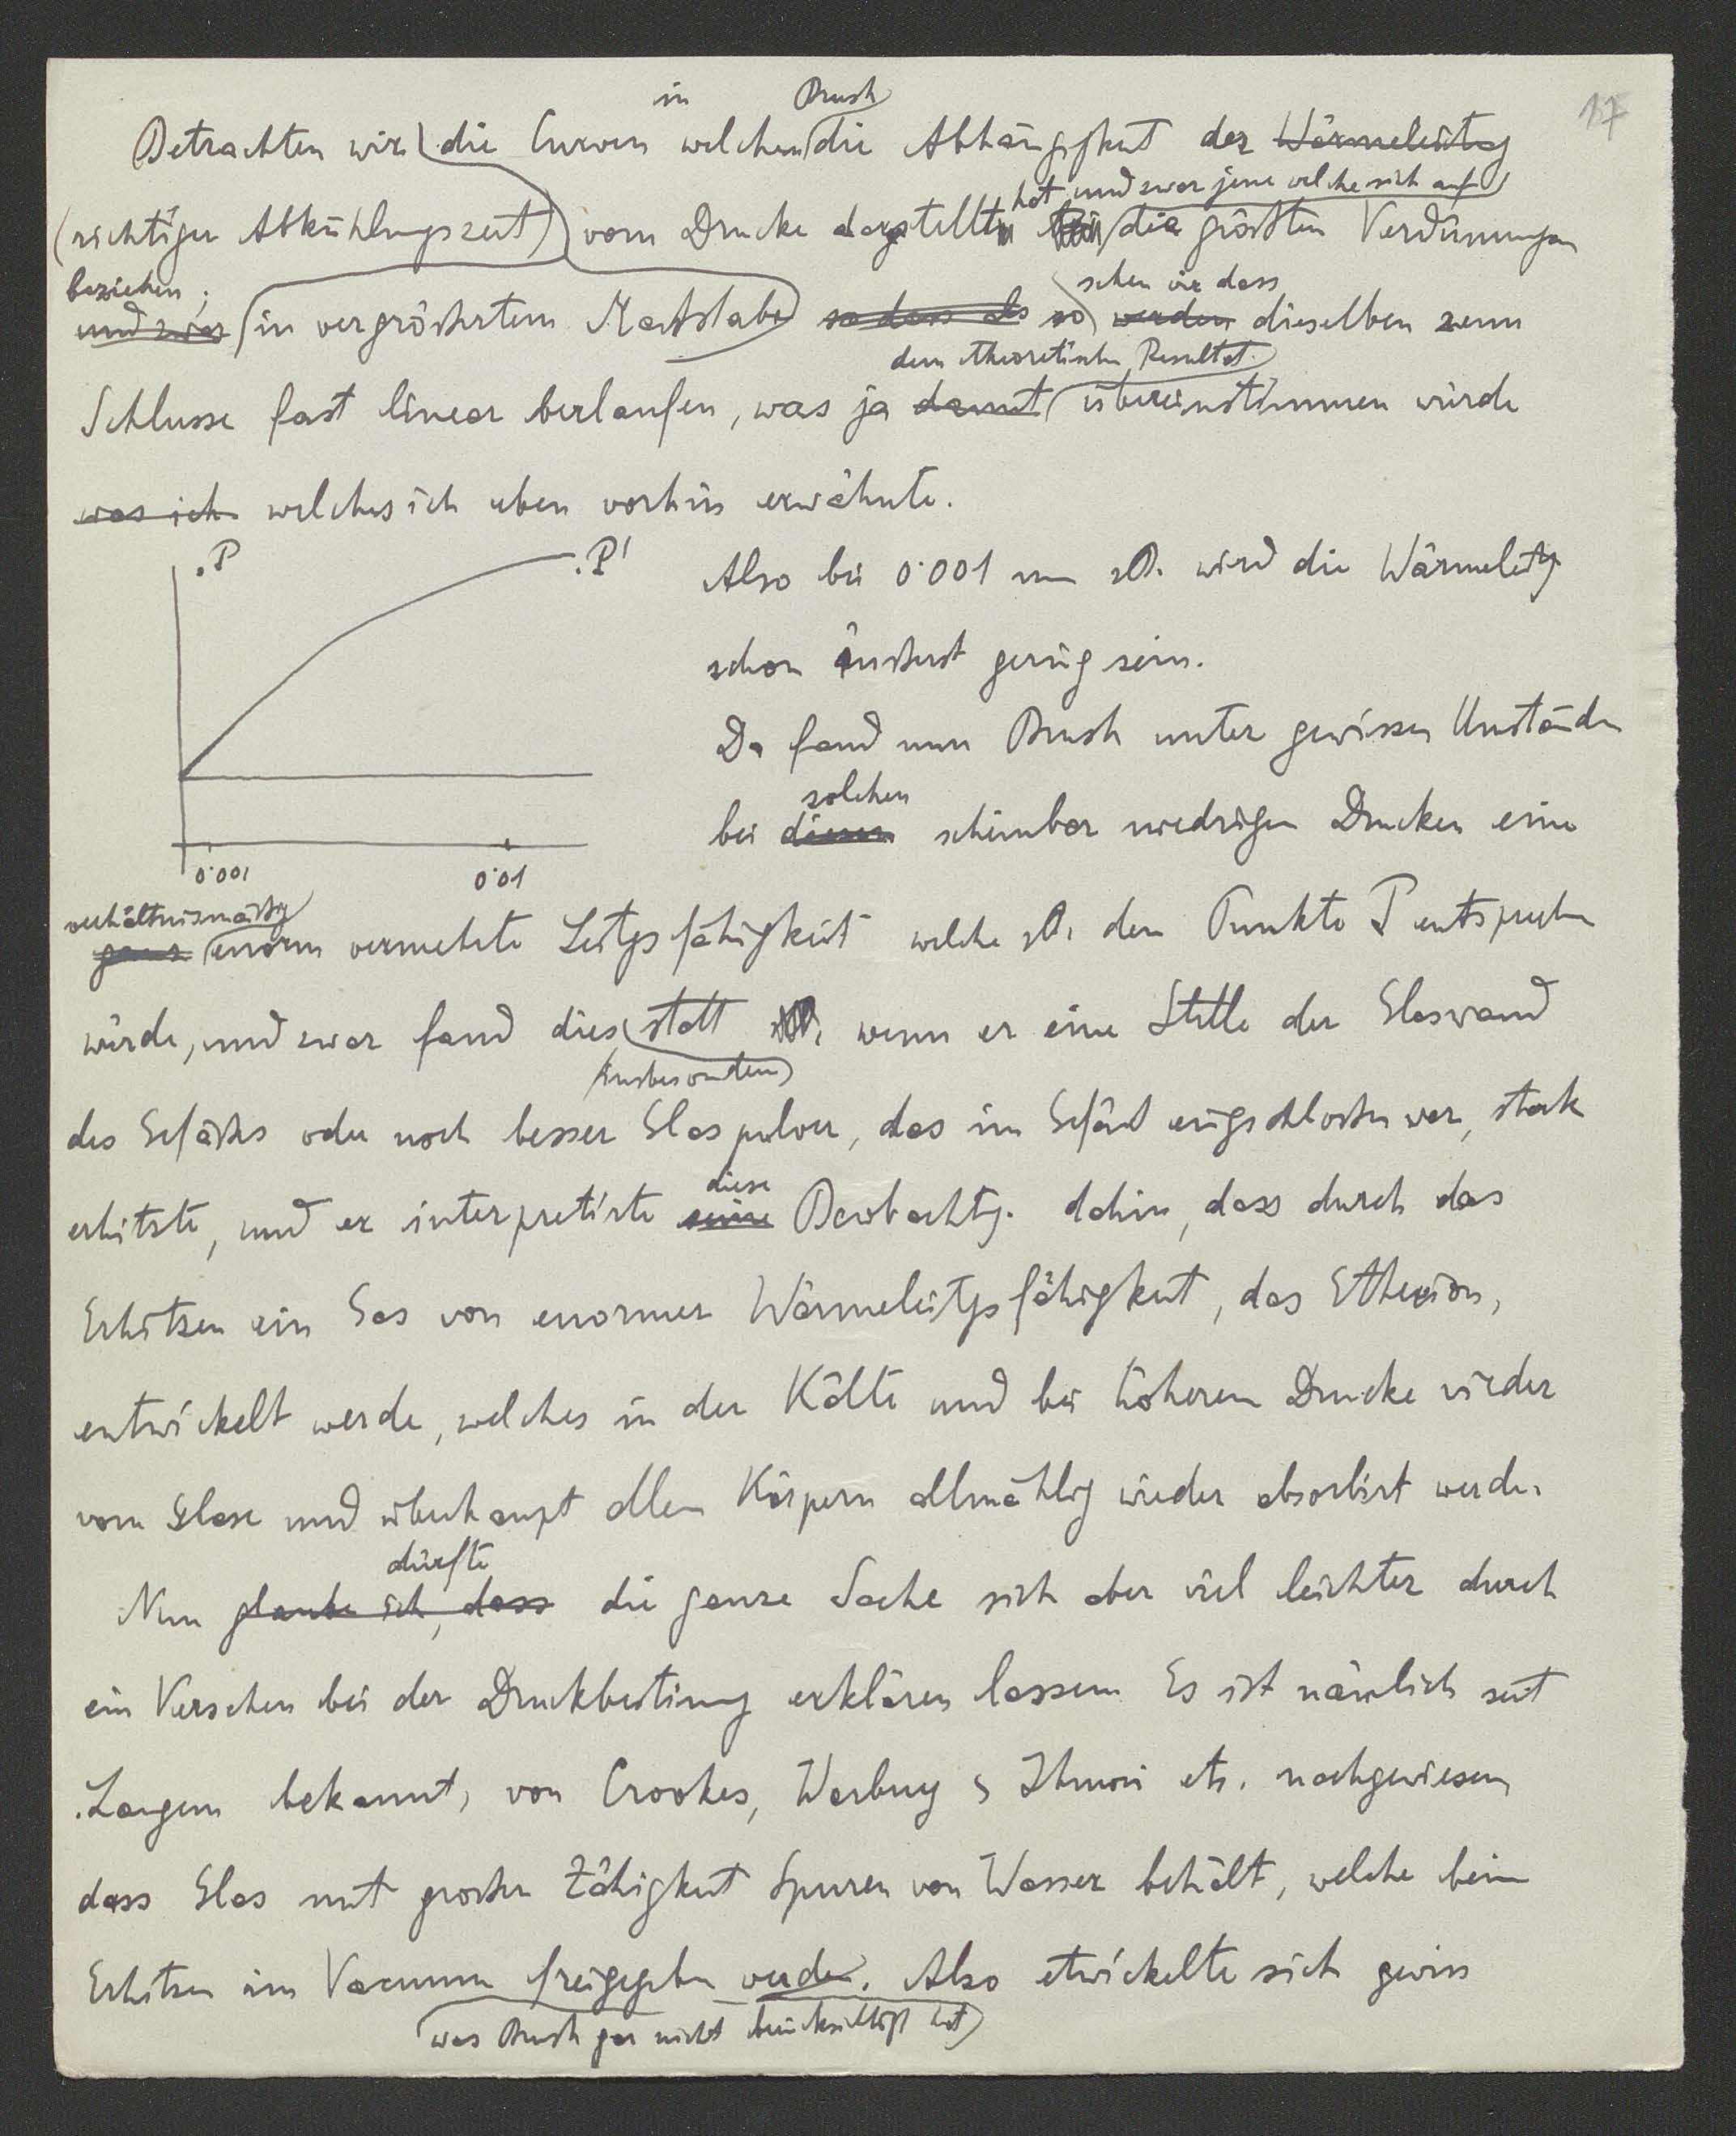 17
in Brush
Betrachten wir die Curven welchen die Abhängigkeit der Wärmeleitg
hat und zwar jene welche sich auf
(richtiger Abkühlungszeit) vom Drucke dargestellt die grössten Verdünnungen
beziehen; sehen wir dass
und zwar in vergrössertem Masstabe so dass als so werden dieselben zum
dem theoretischen Resultat
Schlusse fast linear verlaufen, was ja damit übereinstimmen würde
was ich welches ich eben vorhin erwähnte.
.P .P'
Also bei 0·001 mm z.B. wird die Wärmeleitg
schon äusserst gering sein.
Da fand nun Brush unter gewissen Umständen
solchen
bei diesen scheinbar niedrigen Drucken eine
0·001 0·01
verhältnismässig
ganz enorm vermehrte Leitgsfähigkeit welche z.B. dem Punkte P entsprechen
würde, und zwar fand dies statt wenn er eine Stelle der Glaswand
(insbesondere)
des Gefässes oder noch besser Glaspulver, das im Gefäss eingeschlossen war, stark
diese
erhitzte, und er interpretirte seine Beobachtg. dahin, dass durch das
Erhitzen ein Gas von enormer Wärmeleitgsfähigkeit, das Etherion,
entwickelt werde, welches in der Kälte und bei höherem Drucke wieder
vom Glase und überhaupt allen Körpern allmählig wieder absorbirt werde.
dürfte
Nun glaube ich, dass die ganze Sache sich aber viel leichter durch
ein Versehen bei der Druckbestimg erklären lassen Es ist nämlich seit
Langem bekannt, von Crookes, Warburg & Ihmori etc. nachgewiesen
dass Glas mit grosser Zähigkeit Spuren von Wasser behält, welche beim
Erhitzen im Vacuum freigegeben werden. Also etwickelte sich gewiss
(was Brush gar nicht berücksichtigt hat)